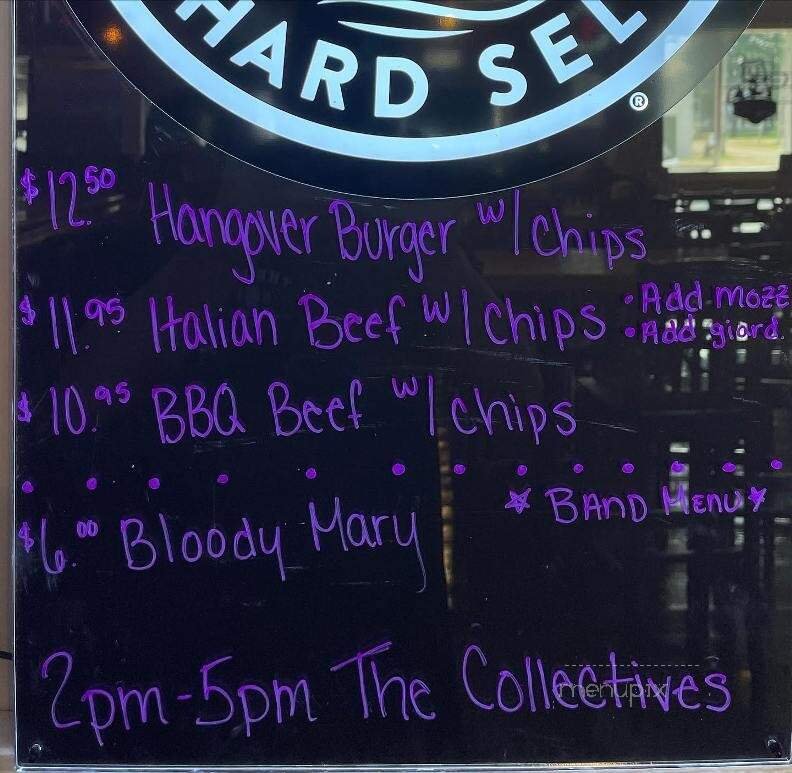 HARD SEL
®
$12.50 Hangover Burger w/ chips
$11.95 Italian Beef w/ chips • Add mozz
• Add giard.
$10.95 BBQ Beef w/ chips
BAND MENU
$6.00 Bloody Mary
2pm-5pm The Collectives
menupix